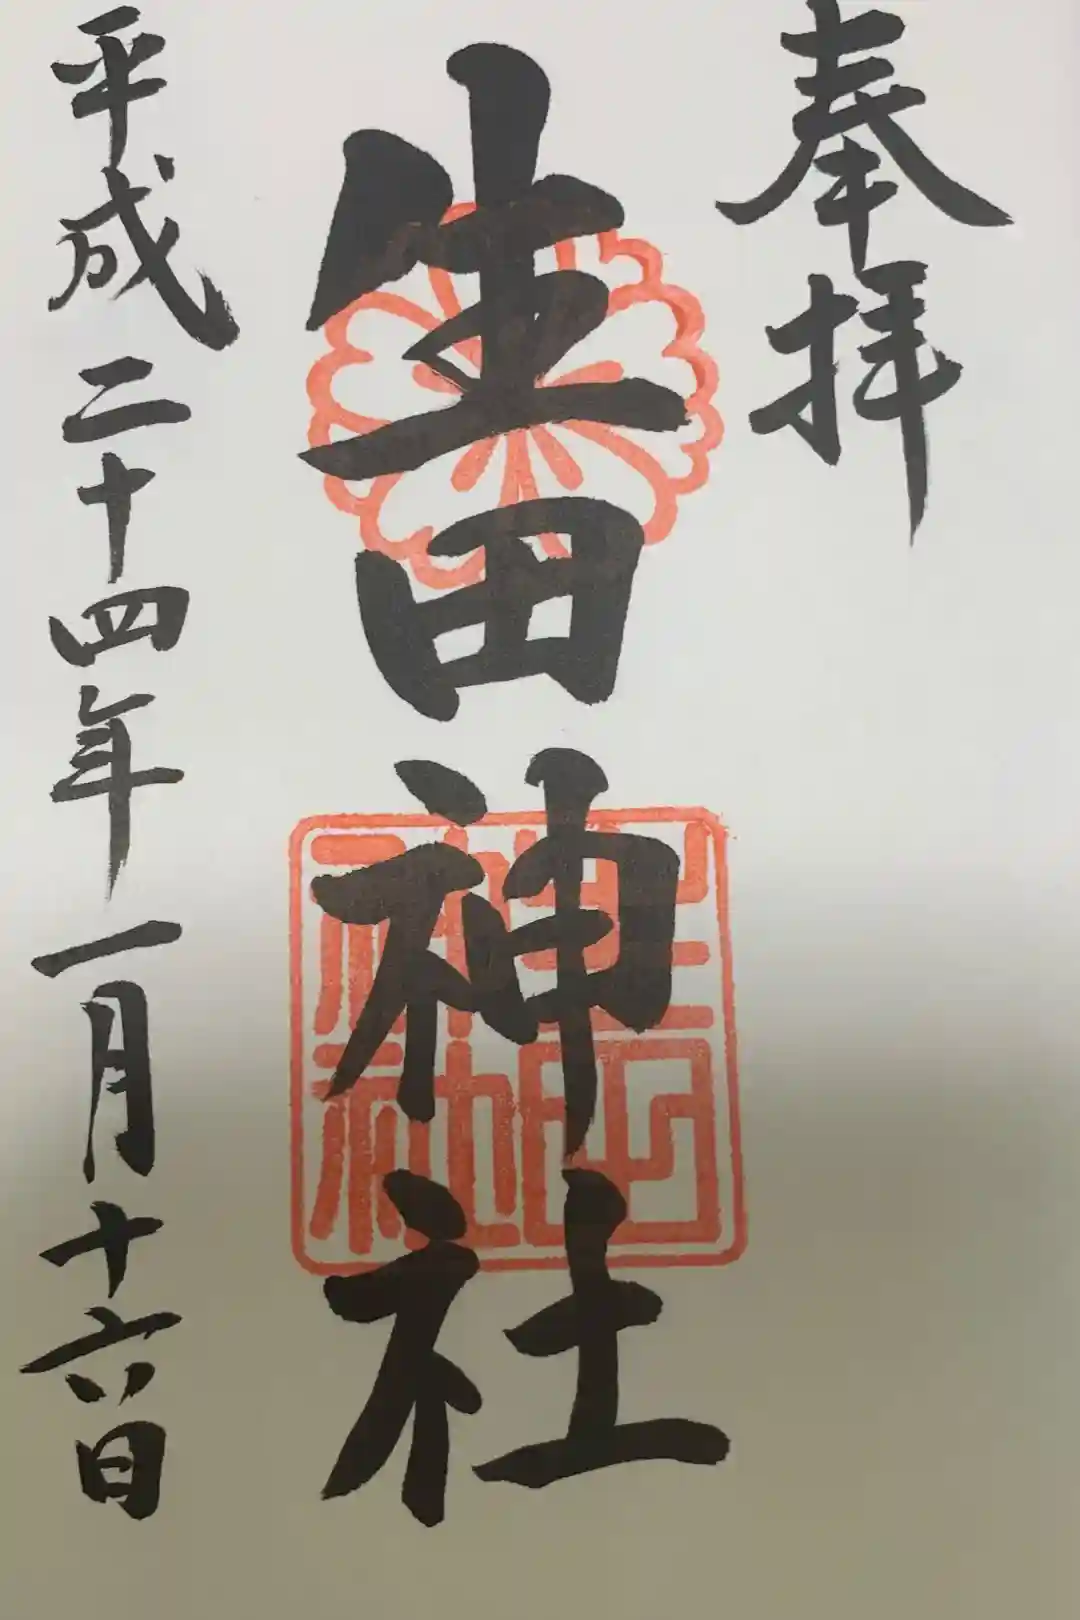 奉拝
生田神社
生田神社
平成二十四年一月十六日